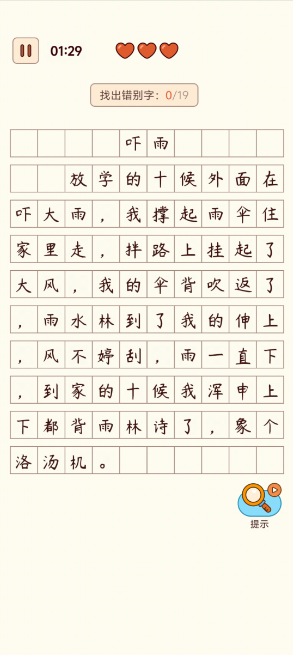 01:29
找出错别字：0/19
吓雨
放学的十候外面在
吓大雨，我撑起雨伞住
家里走，拌路上挂起了
大风，我的伞背吹返了
，雨水林到了我的伸上
，风不婷刮，雨一直下
，到家的十候我浑申上
下都背雨林诗了，象个
洛汤机。
提示